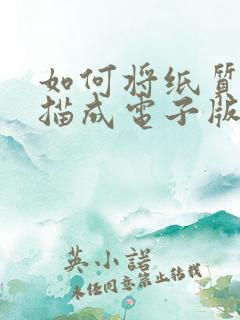 如何将纸质
描成电子版
英小諾
未经同意禁止转载